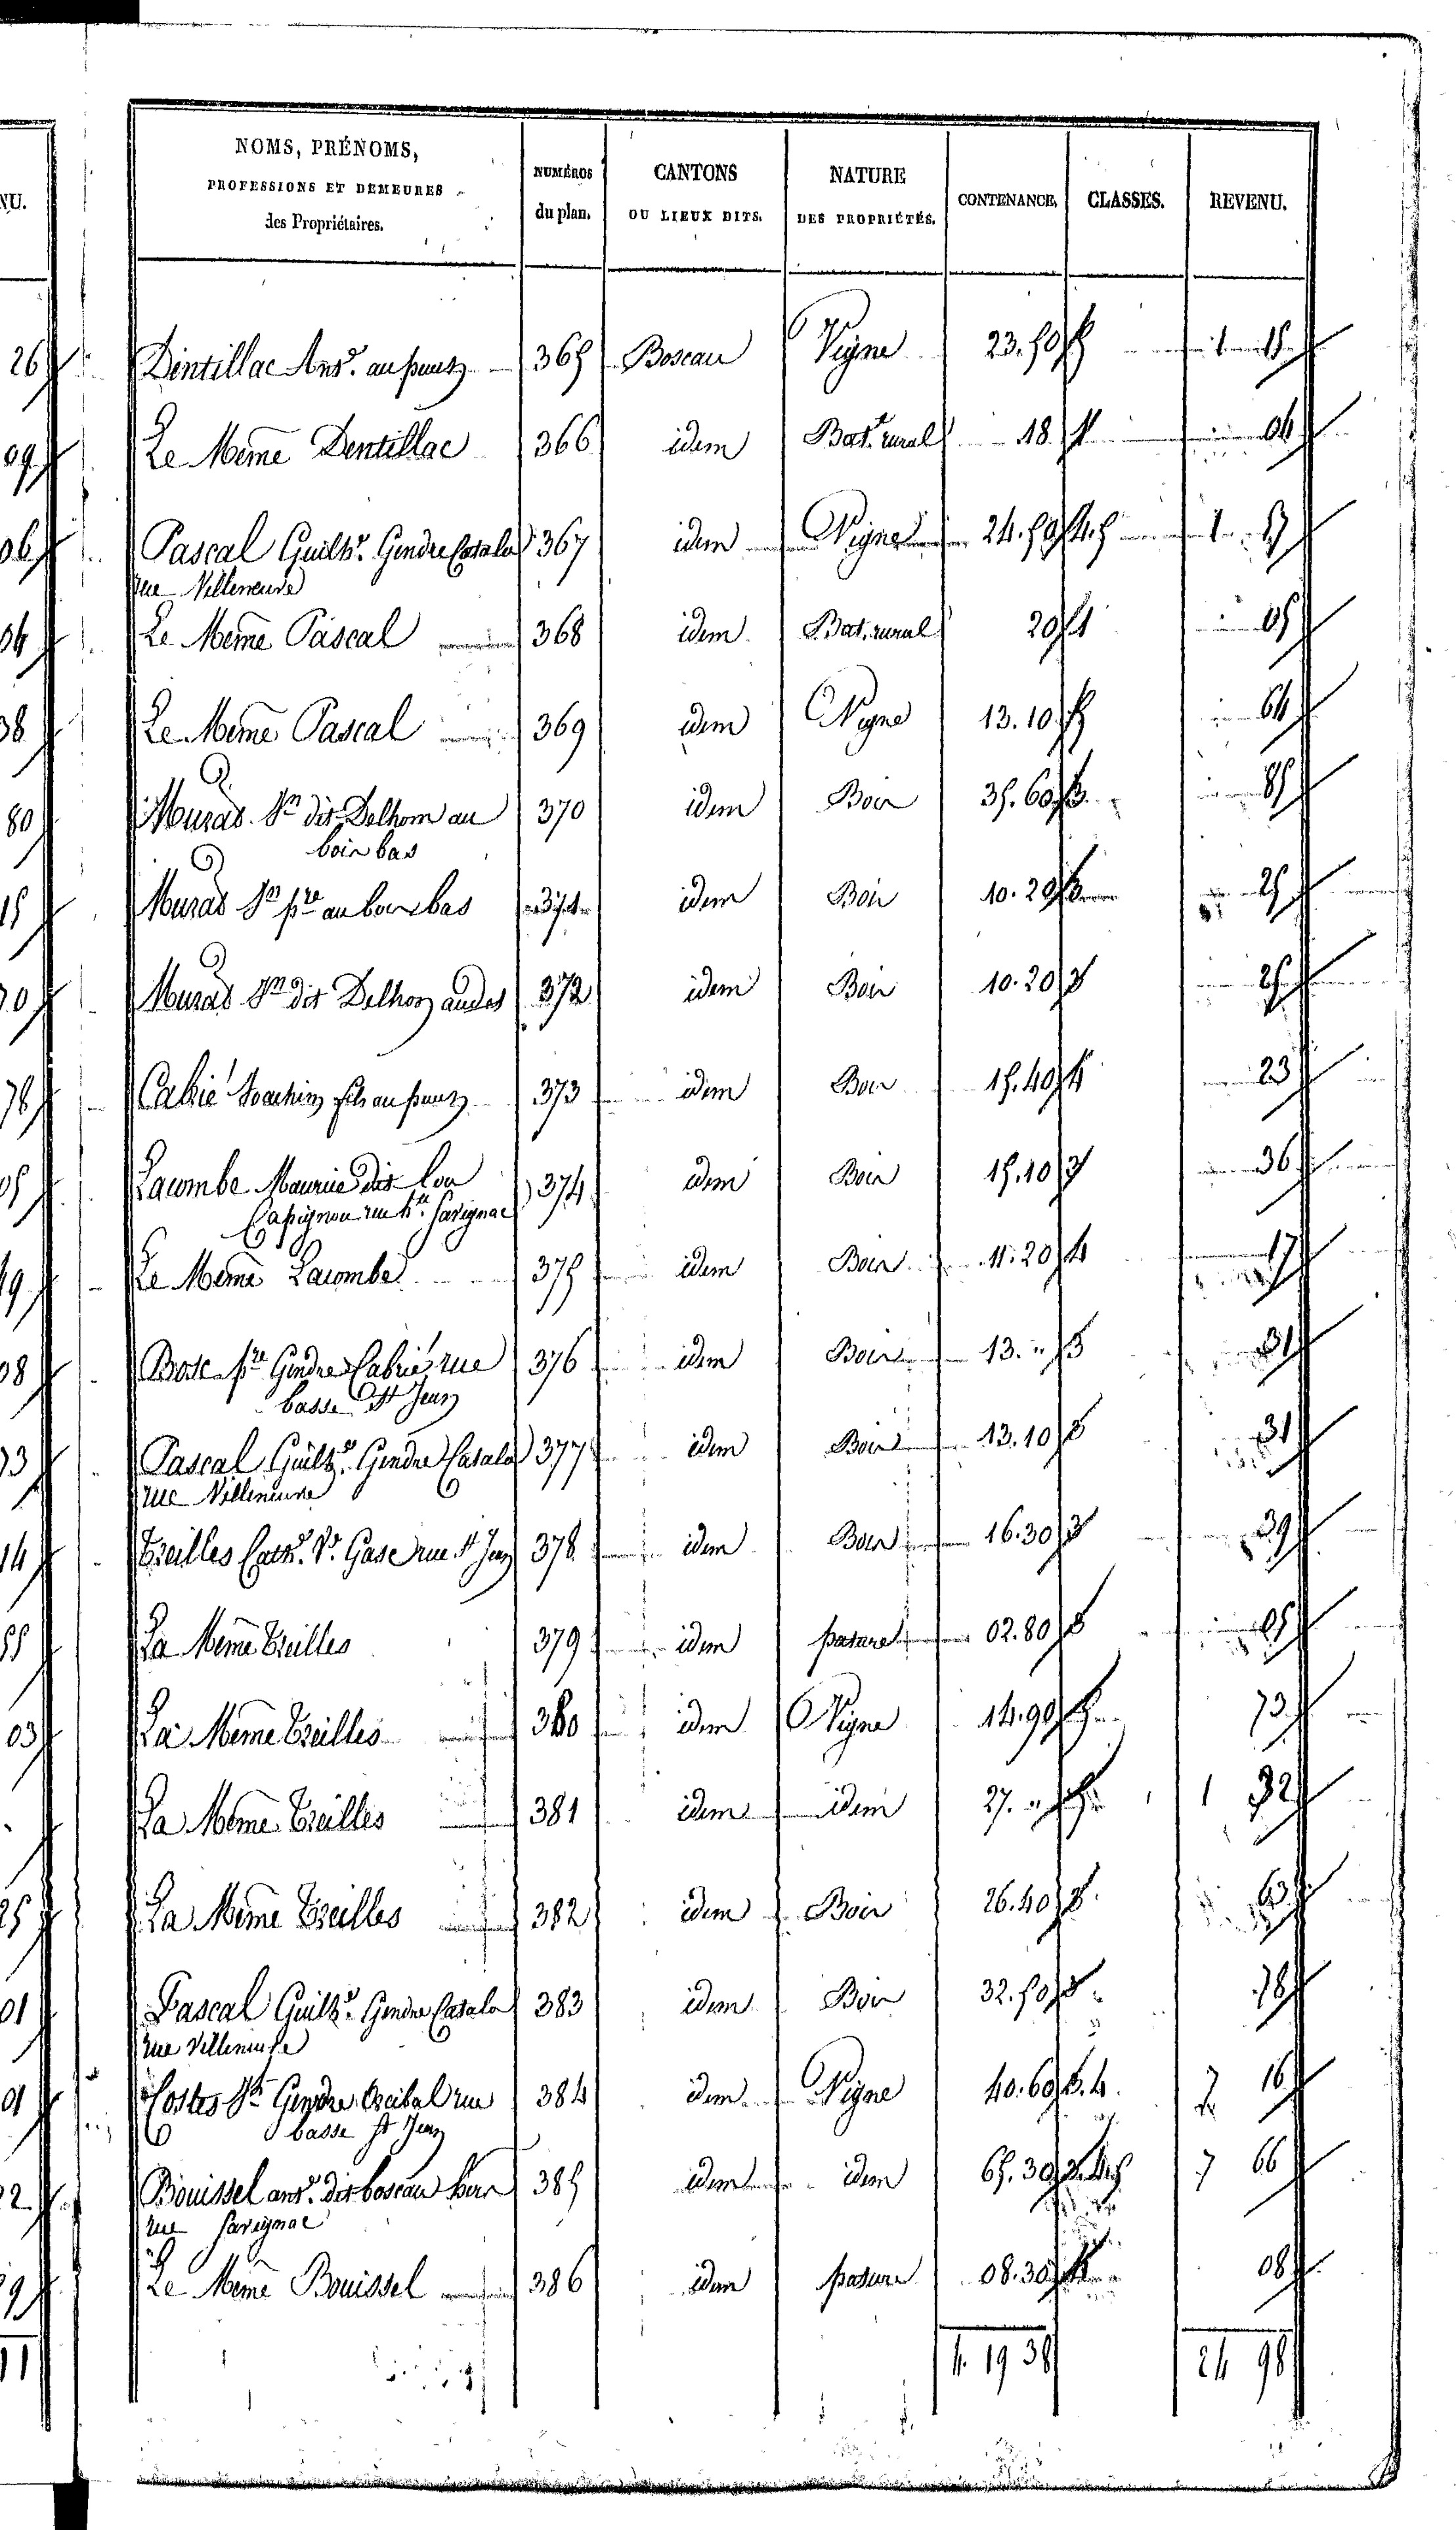 NOMS, PRÉNOMS, PROFESSIONS ET DEMEURES des Propriétaires. | NUMÉROS du plan. | CANTONS OU LIEUX DITS. | NATURE DES PROPRIÉTÉS. | CONTENANCE. | CLASSES. | REVENU.
Dintillac Ant.e au puech | 365 | Boscau | Vigne | 23.50 | 5 | 1 15
Le Même Dentillac | 366 | idem | Bat.t rural | 18 | 1 | 04
Pascal Guilh.e Gendre Casala | 367 | idem | Vigne | 24.50 | 4.5 | 1
rue Villeneuve
Le Même Pascal | 368 | idem | Bat. rural | 20 | 1 | 05
Le Même Pascal | 369 | idem | Vigne | 13.10 | 5 | 64
Murat Jn dit Delhom au | 370 | idem | Bois | 35.60 | 3 | 85
bois bas
Murat Jn pre au bois bas | 371 | idem | Bois | 10.20 | 3 | 25
Murat Jn dit Delhom | 372 | idem | Bois | 10.20 | 3 | 25
Cabrié Joachim fils au puech | 373 | idem | Bois | 15.40 | 4 | 23
Lacombe Maurice dit Lou | 374 | idem | Bois | 15.10 | 3 | 36
Capignou rue h.te Savignac
Le Même Lacombe | 375 | idem | Bois | 11.20 | 4 | 17
Bosc pre Gendre Cabrié rue | 376 | idem | Bois | 13. " | 3 | 31
basse St Jean
Pascal Guilh.e Gendre Casala | 377 | idem | Bois | 13.10 | 3 | 31
rue Villeneuve
Treilles Cath.e V.e Gasc rue St Jean | 378 | idem | Bois | 16.30 | 3 | 39
La Même Treilles | 379 | idem | pature | 02.80 | 3 | 05
La Même Treilles | 380 | idem | Vigne | 14.90 | 5 | 73
La Même Treilles | 381 | idem | idem | 27. " | 5 | 1 32
La Même Treilles | 382 | idem | Bois | 26.40 | 3 | 63
Pascal Guilh.e Gendre Casala | 383 | idem | Bois | 32.50 | 3 | 78
rue Villeneuve
Costes Jn Gendre rue | 384 | idem | Vigne | 40.60 | 3.4 | 7 16
basse St Jean
Bouissel ant.e dit boscau | 385 | idem | idem | 65.30 | 3.4.5 | 7 66
rue Savignac
Le Même Bouissel | 386 | idem | pature | 08.30 | 4 | 08
4. 19 38 | 24 98